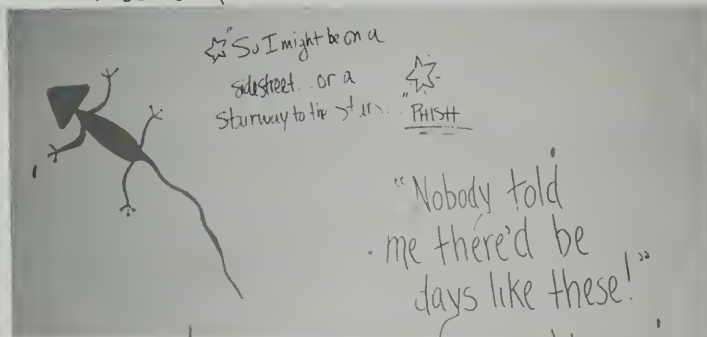 "So I might be on a
sidestreet.. or a
Stairway to the stars.."
PHISH
"Nobody told
me there'd be
days like these!"